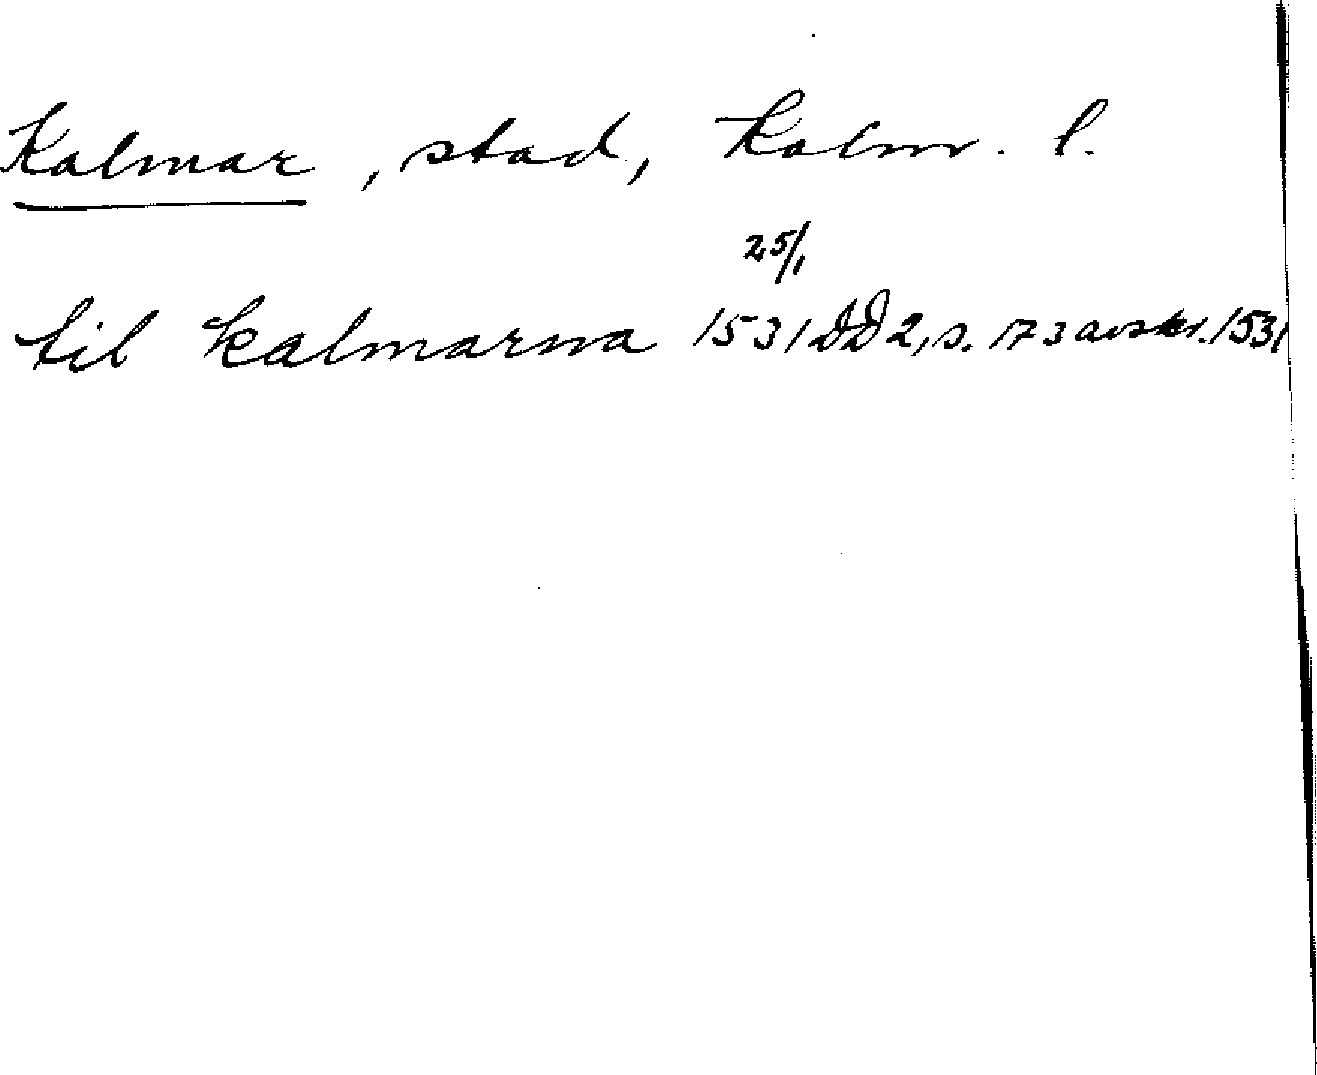 Kalmar, stad, Kalm. l.
25/1
til kalmarna 1531 DD 2, s. 173 avskr. 1531